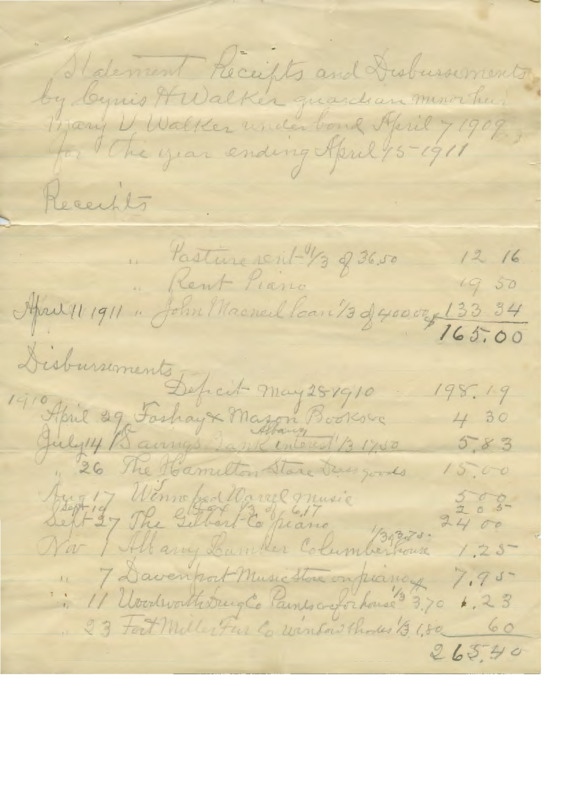 Statement Receipts and Disbursements
by Cyrus H Walker guardian minor heir
Mary V Walker under bond April 7 1909
for the year ending April 15-1911
Receipts
" Pasture rent 1/3 of 36.50 12 16
" Rent Piano 19 50
April 11 1911 " John Macneil loan 1/3 of 400.00 133.34
165.00
Disbursements
Deficit May 28 1910 198.19
1910
April 29 Foshay & Mason Books 4 30
July 14 Albany Savings Bank interest 1/3 17.50 5.83
" 26 The Hamilton Store Dress goods 15.00
Aug 17 Winnofred music 5 00
Sept 10 1/3 of 6.17 2 05
Sept 27 The Gilbert Co piano 24 00
Nov 1 Albany Lumber Co lumber house 1/3 of 3.75 1.25
" 7 Davenport Music Store on piano 7.95
" 11 Woodworth Drug Co Paint for house 1/3 3.70 1.23
23 Fort Miller Fur Co window shades 1/3 1.80 60
265.40